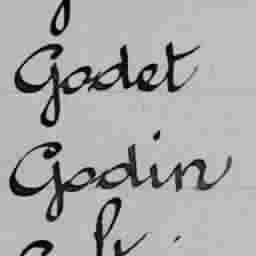 Godet
Godin